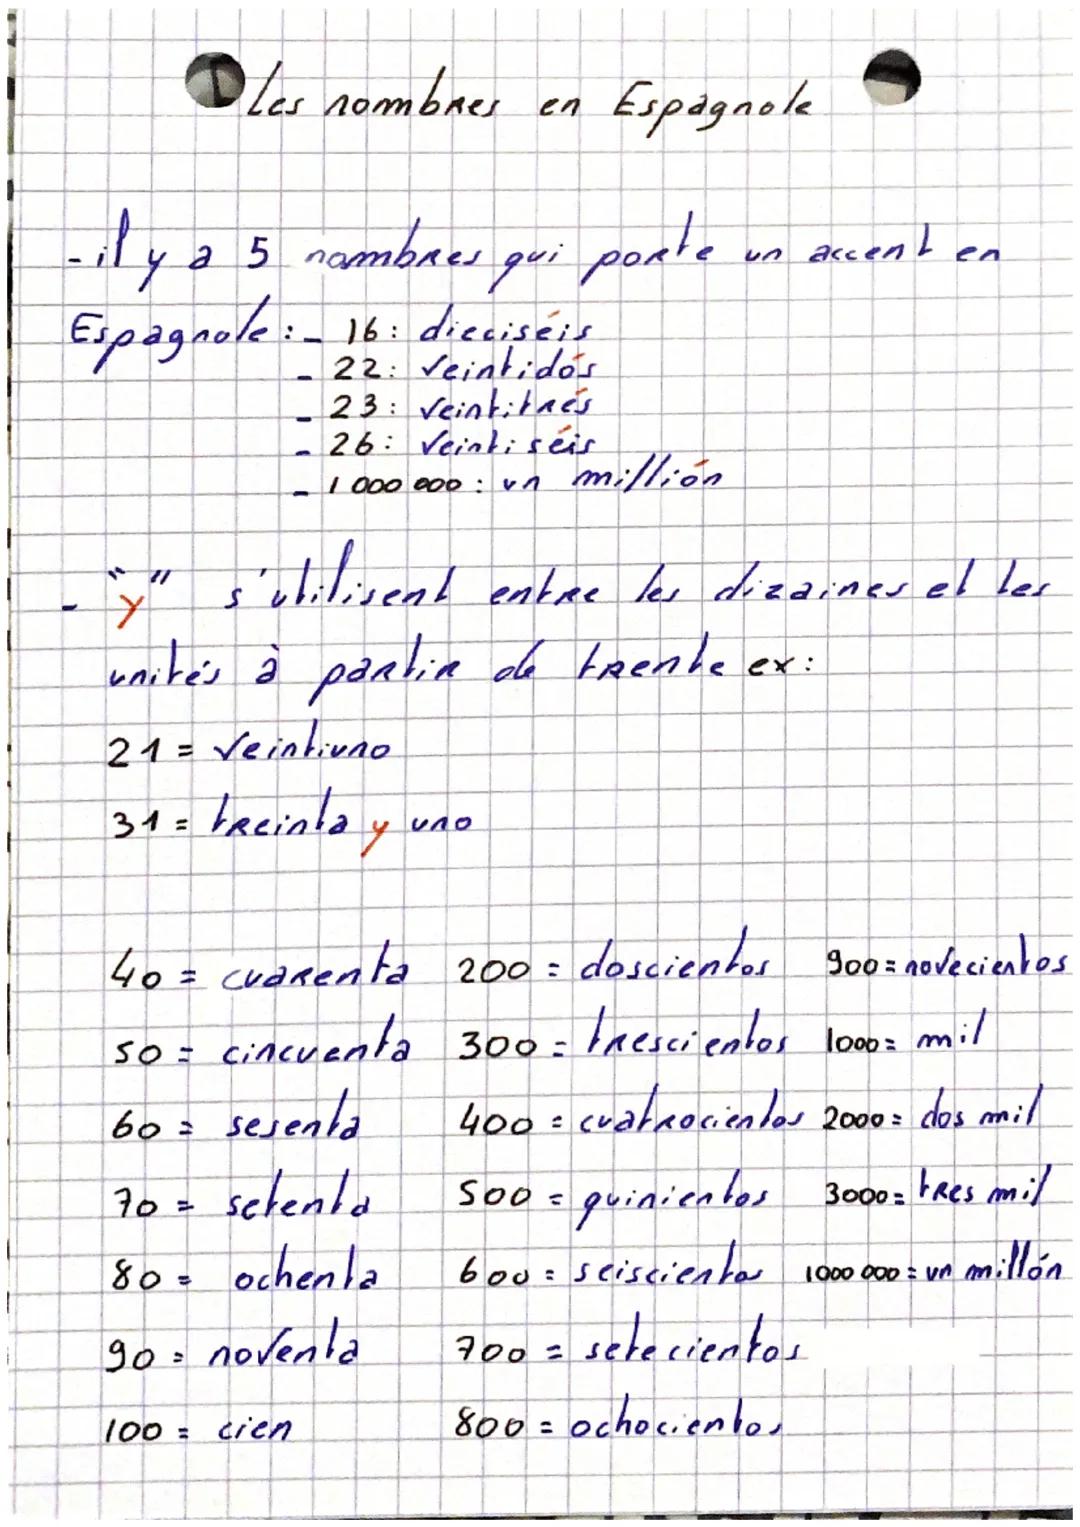 Les nombres en Espagnole
- il y a 5 nombres qui porte un accent en
Espagnole : - 16 : dieciséis
- 22 : veintidós
- 23 : veintitrés
- 26 : veintiséis
- 1 000 000 : un millión
- "y" s'utilisent entre les dizaines et les
unités à partir de trente ex :
21 = veintiuno
31 = treinta y uno
40 = cuarenta 200 = doscientos 900 = novecientos
50 = cincuenta 300 = trescientos 1000 = mil
60 = sesenta 400 = cuatrocientos 2000 = dos mil
70 = setenta 500 = quinientos 3000 = tres mil
80 = ochenta 600 = seiscientos 1000 000 = un millón
90 = noventa 700 = setecientos
100 = cien 800 = ochocientos